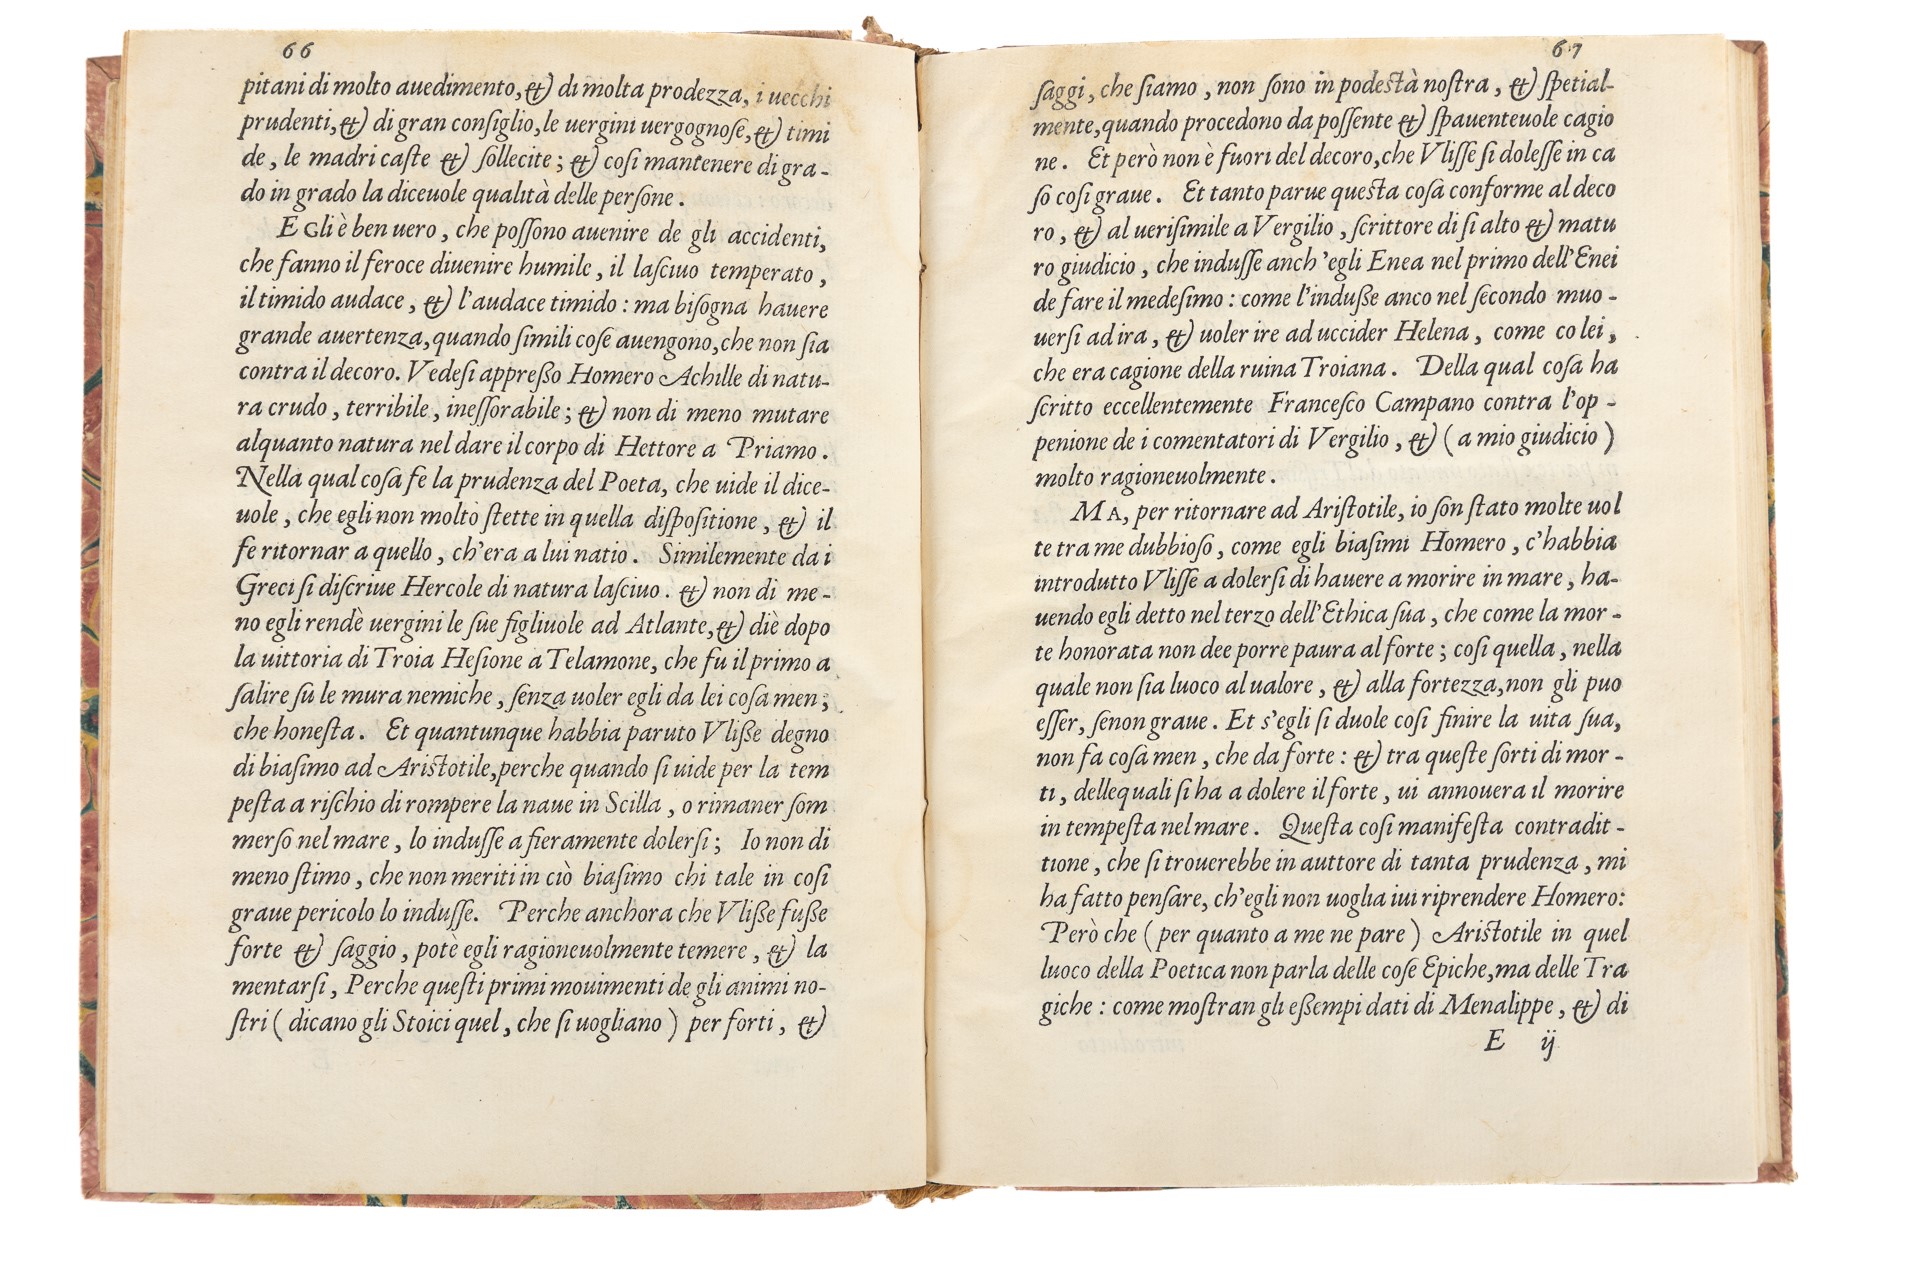 66
pitani di molto auedimento, & di molta prodezza, i uecchi
prudenti, & di gran consiglio, le uergini uergognose, & timi
de, le madri caste & sollecite; & cosi mantenere di gra-
do in grado la diceuole qualità delle persone.
EGli è ben uero, che possono auenire de gli accidenti,
che fanno il feroce diuenire humile, il lasciuo temperato,
il timido audace, & l'audace timido: ma bisogna hauere
grande auertenza, quando simili cose auengono, che non sia
contra il decoro. Vedesi appresso Homero Achille di natu-
ra crudo, terribile, inessorabile; & non di meno mutare
alquanto natura nel dare il corpo di Hettore a Priamo.
Nella qual cosa fe la prudenza del Poeta, che uide il dice-
uole, che egli non molto stette in quella dispositione, & il
fe ritornar a quello, ch'era a lui natio. Similemente da i
Greci si discriue Hercole di natura lasciuo. & non di me-
no egli rendè uergini le sue figliuole ad Atlante, & diè dopo
la uittoria di Troia Hesione a Telamone, che fu il primo a
salire sù le mura nemiche, senza uoler egli da lei cosa men;
che honesta. Et quantunque habbia paruto Vlisse degno
di biasimo ad Aristotile, perche quando si uide per la tem
pesta a rischio di rompere la naue in Scilla, o rimaner som
merso nel mare, lo indusse a fieramente dolersi; Io non di
meno stimo, che non meriti in ciò biasimo chi tale in cosi
graue pericolo lo indusse. Perche anchora che Vlisse fusse
forte & saggio, potè egli ragioneuolmente temere, & la
mentarsi, Perche questi primi mouimenti de gli animi no-
stri (dicano gli Stoici quel, che si uogliano) per forti, &
67
saggi, che siamo, non sono in podestà nostra, & spetial-
mente, quando procedono da possente & spauenteuole cagio
ne. Et però non è fuori del decoro, che Vlisse si dolesse in ca
so cosi graue. Et tanto parue questa cosa conforme al deco
ro, & al uerisimile a Vergilio, scrittore di si alto & matu
ro giudicio, che indusse anch'egli Enea nel primo dell'Enei
de fare il medesimo: come l'indusse anco nel secondo muo-
uersi ad ira, & uoler ire ad uccider Helena, come colei,
che era cagione della ruina Troiana. Della qual cosa ha
scritto eccellentemente Francesco Campano contra l'op-
penione de i comentatori di Vergilio, & (a mio giudicio)
molto ragioneuolmente.
MA, per ritornare ad Aristotile, io son stato molte uol
te tra me dubbioso, come egli biasimi Homero, c'habbia
introdutto Vlisse a dolersi di hauere a morire in mare, ha-
uendo egli detto nel terzo dell'Ethica sua, che come la mor-
te honorata non dee porre paura al forte; cosi quella, nella
quale non sia luoco al ualore, & alla fortezza, non gli puo
esser, senon graue. Et s'egli si duole cosi finire la uita sua,
non fa cosa men, che da forte: & tra queste sorti di mor-
ti, dellequali si ha a dolere il forte, ui annouera il morire
in tempesta nel mare. Questa cosi manifesta contradit-
tione, che si trouerebbe in auttore di tanta prudenza, mi
ha fatto pensare, ch'egli non uoglia iui riprendere Homero:
Però che (per quanto a me ne pare) Aristotile in quel
luoco della Poetica non parla delle cose Epiche, ma delle Tra
giche: come mostran gli essempi dati di Menalippe, & di
E ij